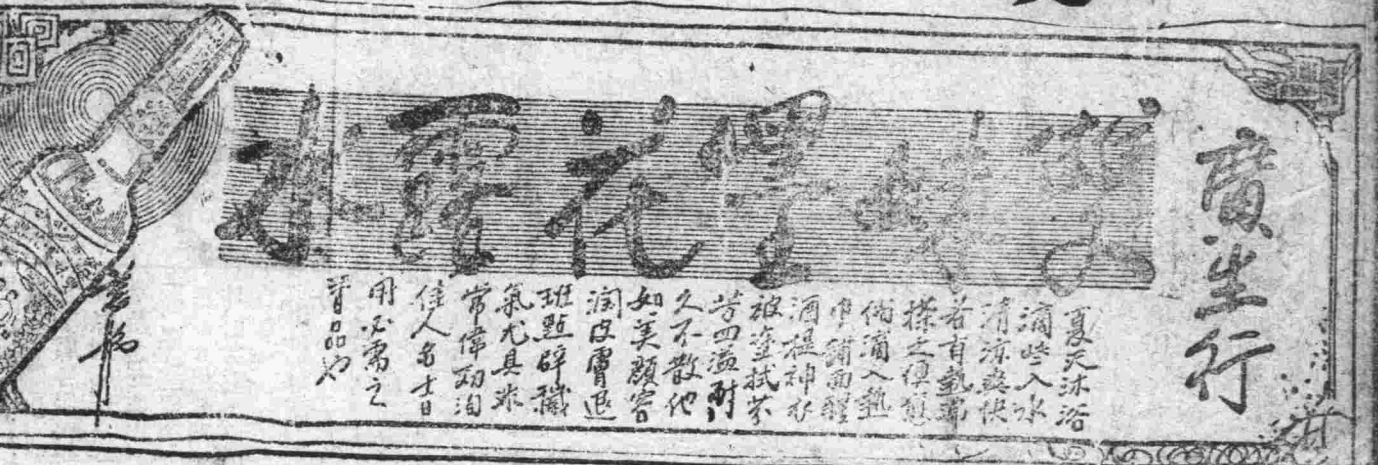 廣生行
雙妹嘜花露水
夏天沐浴
滴些入水
清涼爽快
若有熱痱
搽之便愈
倘滴入熱
巾鋪面醒
酒提神衣
被塗拭芬
芳四溢耐
久不散他
如美顏容
潤皮膚退
斑點辟穢
氣尤具殊
常偉効洵
佳人名士日
用必需之
品也